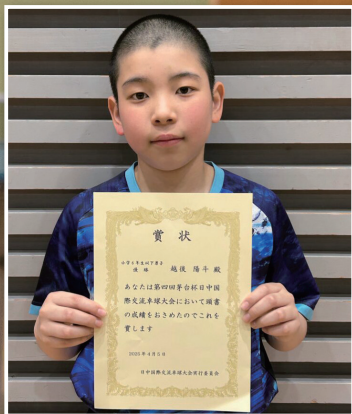 賞状
小学5年生以下男子
優勝 越後陽斗殿
あなたは第四回茅台杯日中国
際交流卓球大会において頭書
の成績をおさめたのでこれを
賞します
2025年4月5日
日中国際交流卓球大会実行委員会